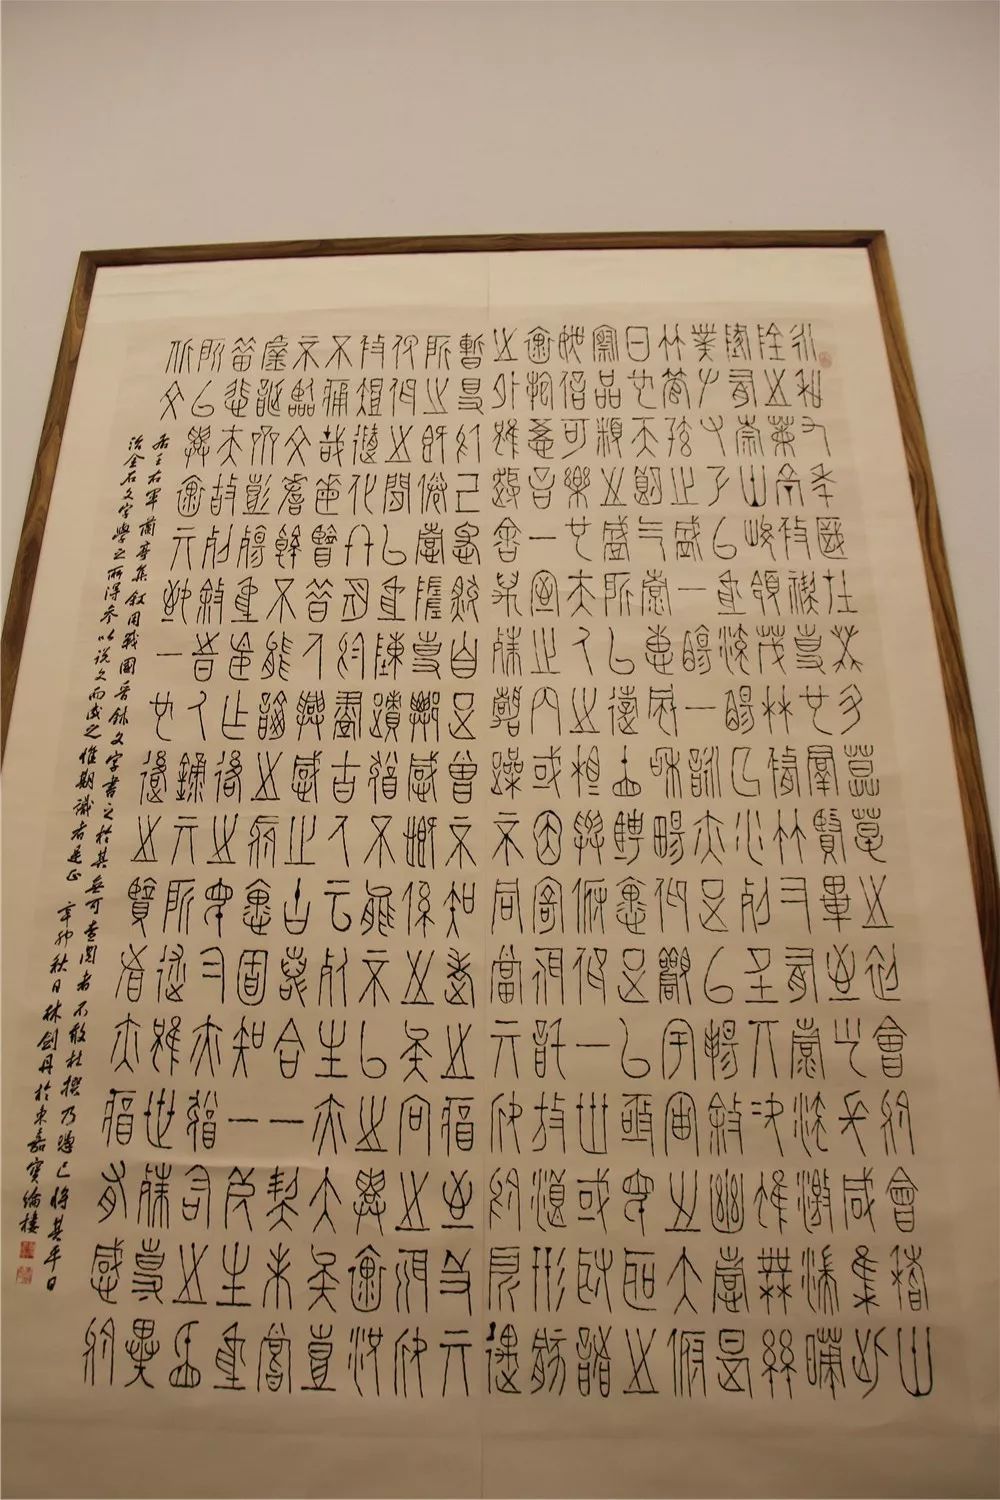 永和九年歲在癸丑暮春之初會于會稽山
陰之蘭亭脩禊事也群賢畢至少長咸集此
地有崇山峻領茂林脩竹又有清流激湍映
帶左右引以為流觴曲水列坐其次雖無絲
竹管弦之盛一觴一詠亦足以暢敘幽情是
日也天朗氣清惠風和暢仰觀宇宙之大俯
察品類之盛所以遊目騁懷足以極視聽之
娛信可樂也夫人之相與俯仰一世或取諸
懷抱悟言一室之內或因寄所託放浪形骸
之外雖趣舍萬殊靜躁不同當其欣於所遇
暫得於己快然自足曾不知老之將至及其
所之既倦情隨事遷感慨係之矣向之所欣
俛仰之間以為陳迹猶不能不以之興懷況
脩短隨化終期於盡古人云死生亦大矣豈
不痛哉每覽昔人興感之由若合一契未嘗
不臨文嗟悼不能喻之於懷固知一死生為
虛誕齊彭殤為妄作後之視今亦由今之視
昔悲夫故列敘時人錄其所述雖世殊事異
所以興懷其致一也後之覽者亦將有感於
斯文
右王右軍蘭亭集敘用戰國晉鉥文字書之於其無可查閱者不敢杜撰乃憑己將其平日
治金石文字學之所得參以說文而成之惟期識者是正 辛卯秋日林劍丹於東嘉寶綸樓